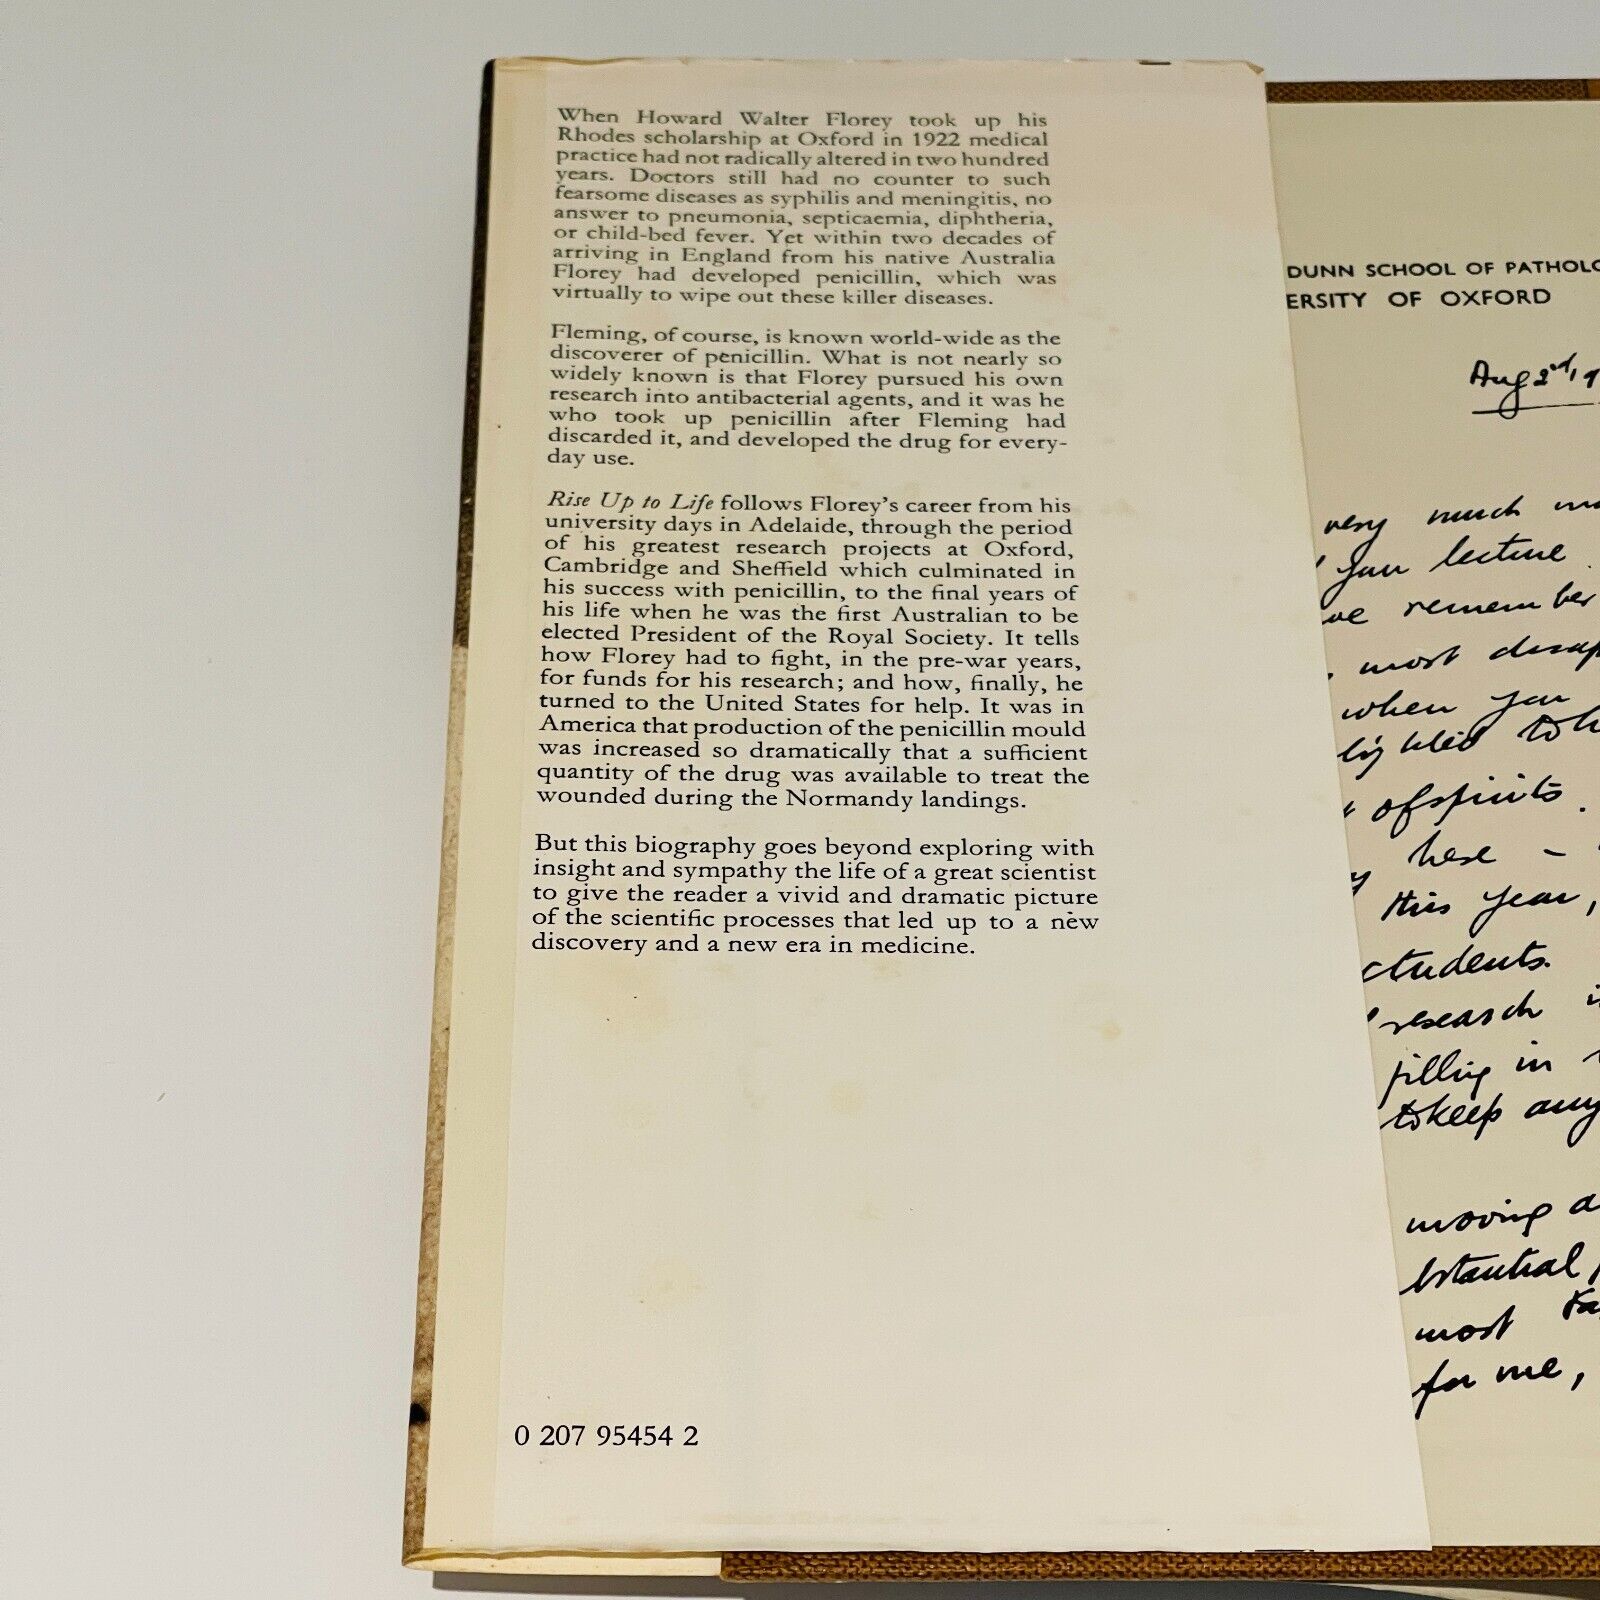 When Howard Walter Florey took up his
Rhodes scholarship at Oxford in 1922 medical
practice had not radically altered in two hundred
years. Doctors still had no counter to such
fearsome diseases as syphilis and meningitis, no
answer to pneumonia, septicaemia, diphtheria,
or child-bed fever. Yet within two decades of
arriving in England from his native Australia
Florey had developed penicillin, which was
virtually to wipe out these killer diseases.
Fleming, of course, is known world-wide as the
discoverer of penicillin. What is not nearly so
widely known is that Florey pursued his own
research into antibacterial agents, and it was he
who took up penicillin after Fleming had
discarded it, and developed the drug for every-
day use.
Rise Up to Life follows Florey's career from his
university days in Adelaide, through the period
of his greatest research projects at Oxford,
Cambridge and Sheffield which culminated in
his success with penicillin, to the final years of
his life when he was the first Australian to be
elected President of the Royal Society. It tells
how Florey had to fight, in the pre-war years,
for funds for his research; and how, finally, he
turned to the United States for help. It was in
America that production of the penicillin mould
was increased so dramatically that a sufficient
quantity of the drug was available to treat the
wounded during the Normandy landings.
But this biography goes beyond exploring with
insight and sympathy the life of a great scientist
to give the reader a vivid and dramatic picture
of the scientific processes that led up to a new
discovery and a new era in medicine.
0 207 95454 2
DUNN SCHOOL OF PATHOLO
ERSITY OF OXFORD
Aug
very much
lecture
remember
most
when you
of spirits.
here -
this year,
students.
research
filling in
to keep any
moving
most
for me,